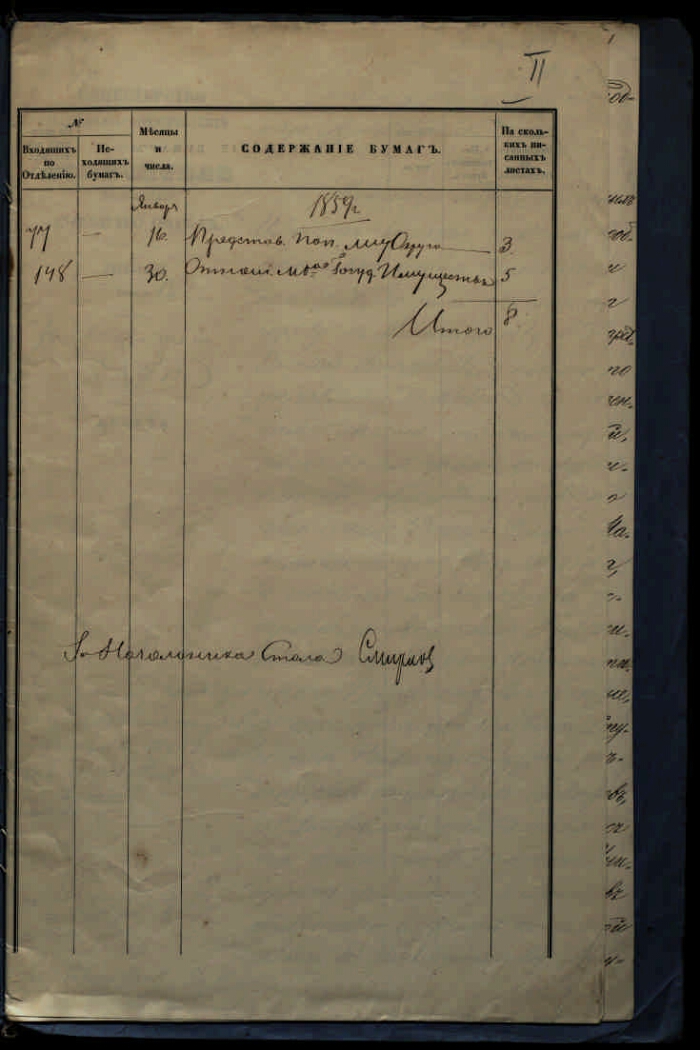 II
№
Входящихъ по Отдѣленію.
Исходящихъ бумагъ.
Мѣсяцы и числа.
СОДЕРЖАНІЕ БУМАГЪ.
На скольких писанныхъ листахъ.
Января 1859 г.
77 — 16. Представ. Поп. Округа — 3.
148 — 30. Отнош. М–ва Госуд. Имуществъ 5
Итого 8.
Начальника Стола Смирнов